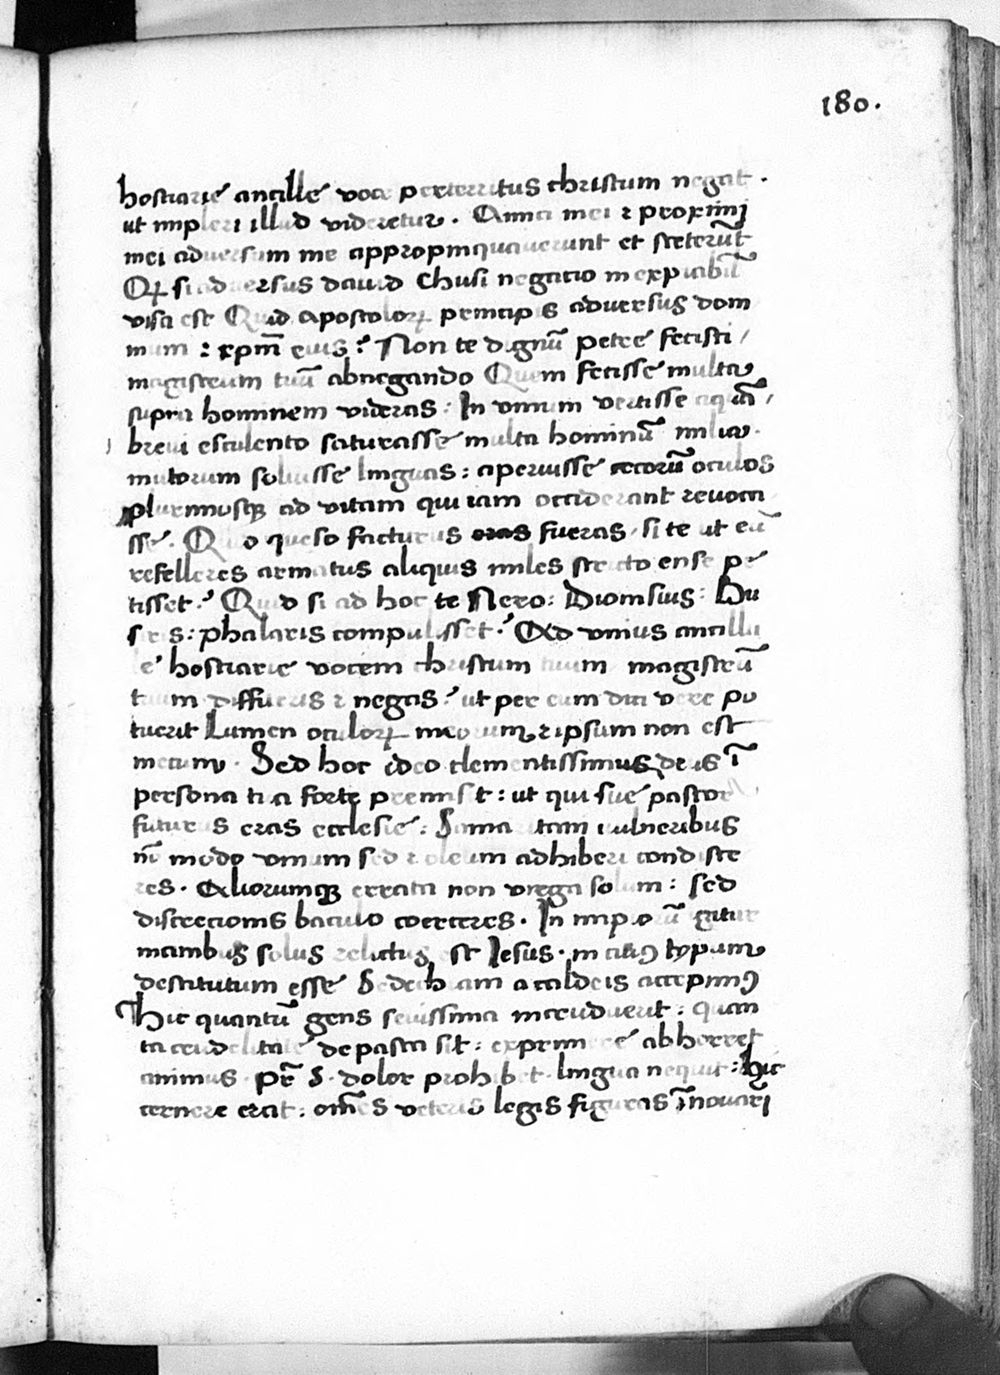 180.
hostiarie ancille voce perterritus christum negat .
ut impleri illud videretur . Amici mei ⁊ proximi
mei adversum me appropinquaverunt et steterūt
Qꝝ si adversus david Chusi negatio inexpiabił
visa est Quid apostoloꝝ principis adversus dom
inum ⁊ xpm̄ eius ? Non te dignū petre fecisti /
magistrum tuū abnegando Quem fecisse multa
supra hominem videras : In vinum vertisse aquā /
brevi esculento saturasse multa hominū milia .
mutorum solvisse linguas : aperuisse cecorū oculos
plurimosqꝫ ad vitam qui iam occiderant revoca
sse . Quo queso facturus eras fueras , si te ut eū
refelleres armatus aliquis miles stricto ense pe
tisset ? Quid si ad hoc te Nero : Dionisius : Bu
siris : phalaris compulisset ? Ad unius ancilla
le hostiarie vocem christum tuum magistrū
tuum diffiteris ⁊ negas ? ut per eum dici vere po
tuerit Lumen oculoꝝ meorum ⁊ ipsum non est
mecum . Sed hoc ideo clementissimus deus ī
persona tua forte premisit : ut qui sue pastor
futurus eras ecclesie : Samaritani vulneribus
nō modo vinum sed ⁊ oleum adhiberi condisce
res . Aliorumqꝫ errata non virga solum : sed
discrecionis baculo coerceres . In impiorū igitur
manibus solus relictus est Jesus . in cuiꝰ typum
destitutum esse Sedechiam a caldeis accepimꝰ
Hic quantū gens sevissima increduerit : quan
ta crudelitate depasta sit : exprimere abhorret
animus . pr̄ S . dolor prohibet . lingua nequit : hic
cernere erat : om̄es veteris legis figuras īnovari